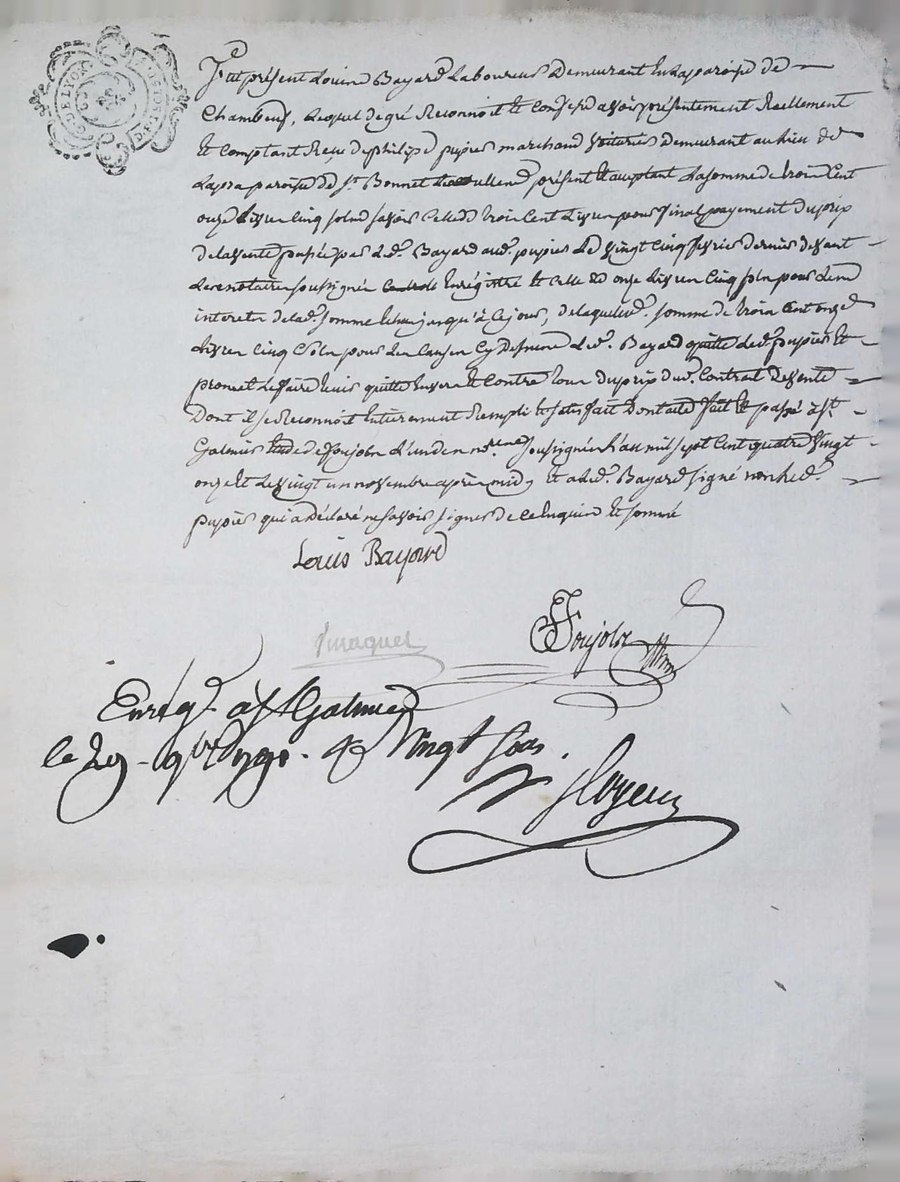 Fut présent Louis Bayard Laboureur Demeurant en la paroisse de
Chambeuf, Lequel de gré Reconnoit et Confesse avoir présentement Réellement
Et Comptant Reçu de philipe pupier marchand Voiturier Demeurant au lieu de
Lapra paroisse de St. Bonnet Les oulles présent et acceptant La somme de trois Cent
onze Livres Cinq sols savoir Celle de trois Cent Livres pour final payement du prix
de la vente passée par Led. Bayard aud. pupier Le Vingt Cinq fevrier dernier devant
Le notaire soussigné Enregistré et Celle de onze Livres Cinq sols pour Les
interets de lad. somme jusqu'à Ce jour, de laquelle somme de trois Cent onze
Livres Cinq sols pour Les Causes Cy Dessus Led. Bayard quitte Led. pupier et
promet Le faire tenir quitte Envers et Contre tous du prix dud. Contrat de vente
Dont il se Reconnoit Entierement Rempli et satisfait Dont acte fait et passé à St.
Galmier Etude de Foujols L'un des nres. soussignés L'an mil sept Cent quatre Vingt
onze et Le Vingt un novembre après midy et a Led. Bayard signé non Led.
pupier qui a Déclaré ne savoir signer de ce Enquis et sommé
Louis Bayard
Foujols
Enrég. à St Galmier
le 29 9bre 1791. R Vingt sols.